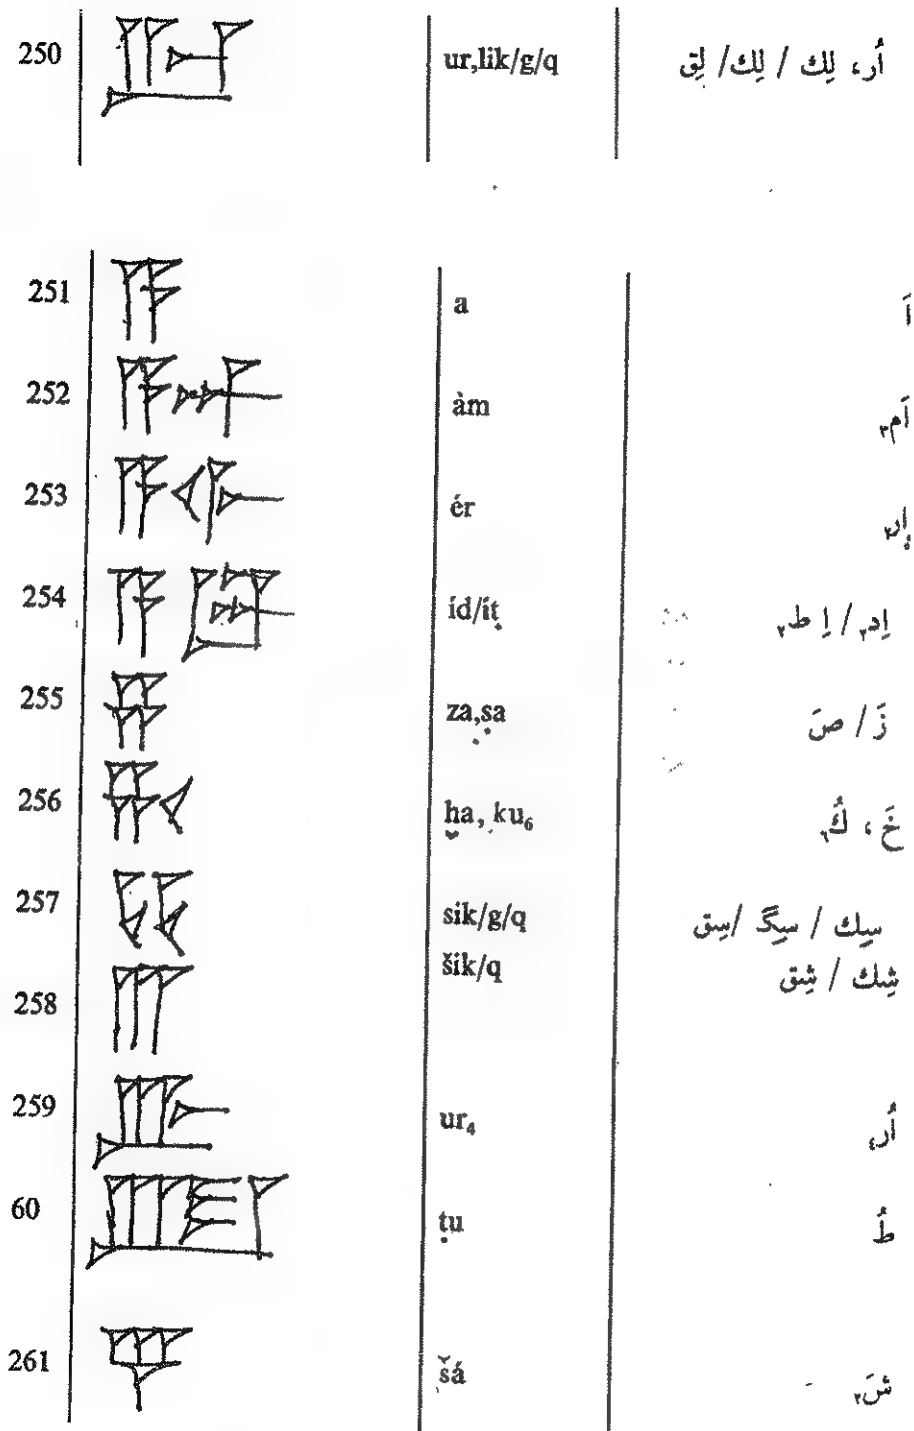 250 ur,lik/g/q أُر، لِك / لِك/ لِق
251 a اَ
252 àm اَم٣
253 ér إر٢
254 íd/íṭ اِد٢ / اِ ط٢
255 za,ṣa زَ / صَ
256 ḫa, ku₆ خَ ، كُ٦
257 sik/g/q سِك / سِگ /سِق
šik/q شِك / شِق
258
259 ur₄ أُر٤
60 ṭu طُ
261 šá شَ٢